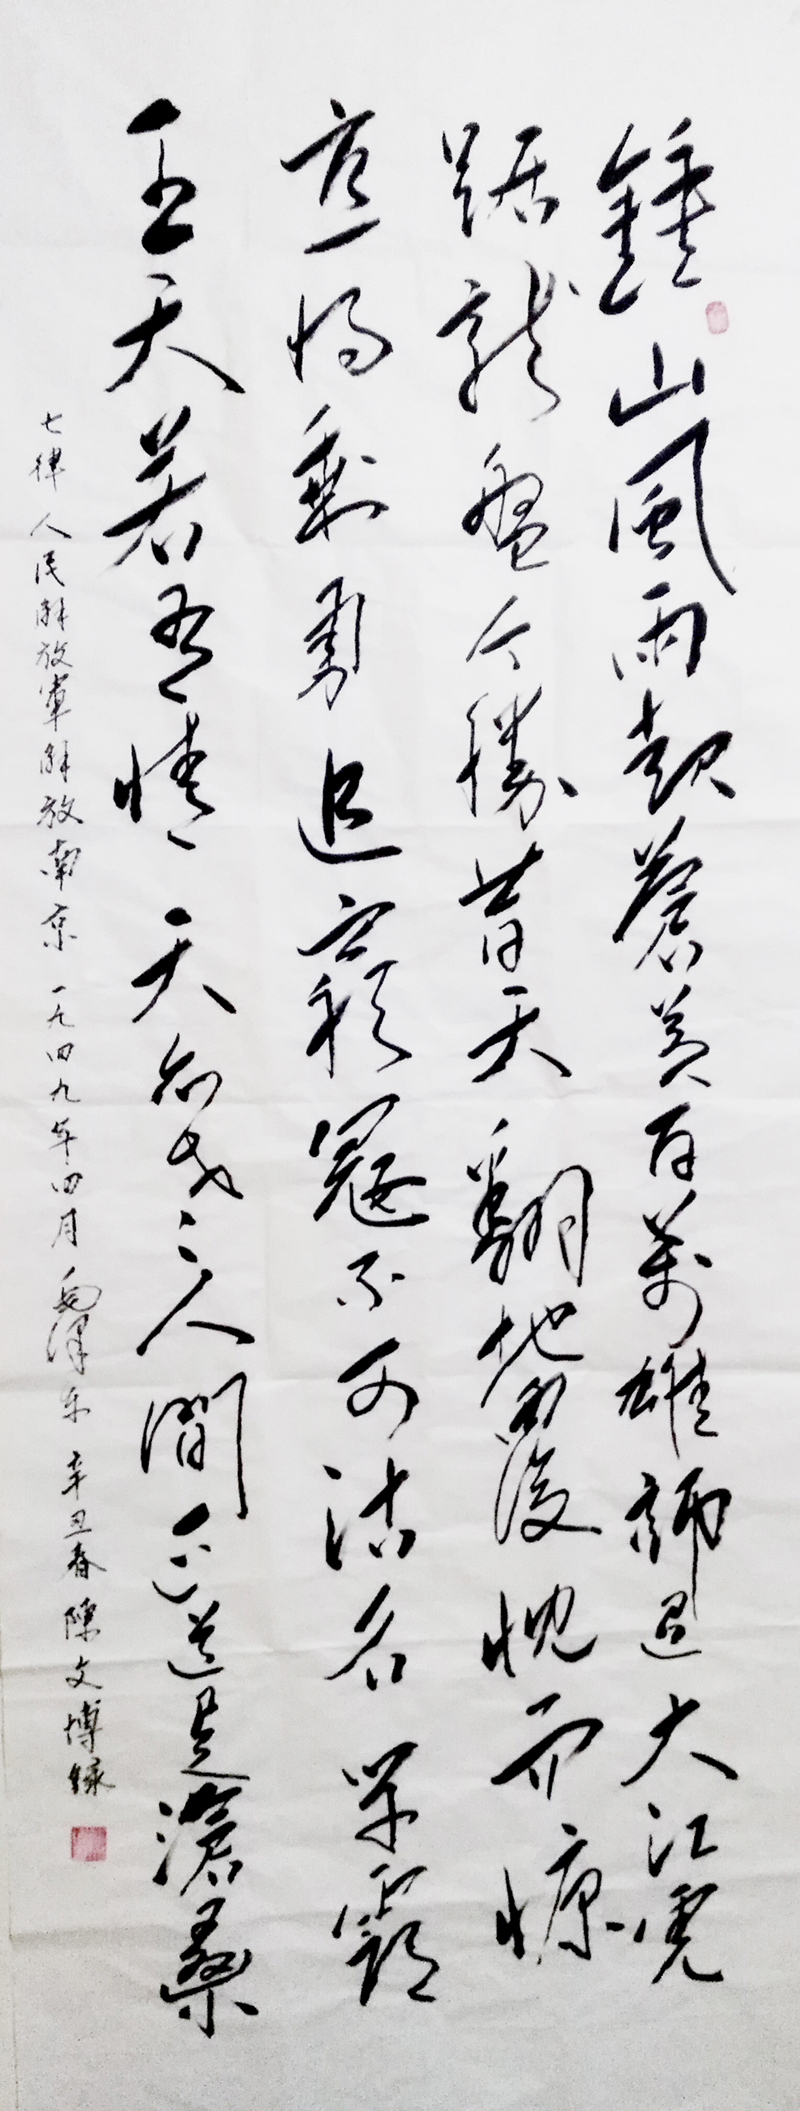 鍾山風雨起蒼黃百萬雄師過大江虎
踞龍盤今勝昔天翻地覆慨而慷
宜将剩勇追窮寇不可沽名學霸
王天若有情天亦老人間正道是滄桑
七律人民解放軍解放南京一九四九年四月毛澤东辛丑春陳文博錄